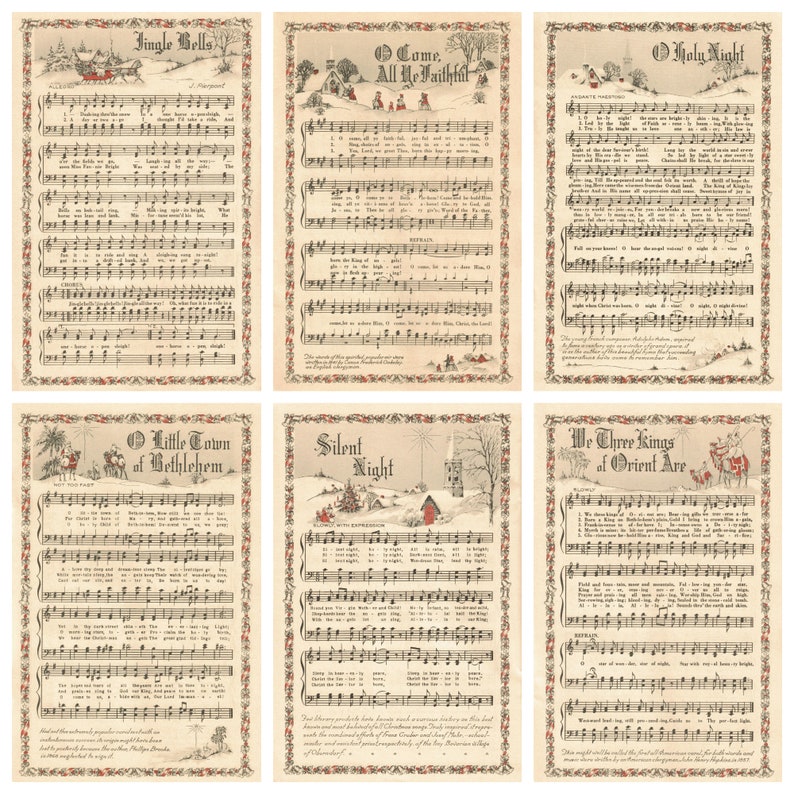 Jingle Bells
ALLEGRO
J. Pierpont
1. Dashing thro' the snow In a one horse open sleigh,
2. A day or two ago I thought I'd take a ride, And
o'er the fields we go, Laughing all the way;
soon Miss Fannie Bright Was seated by my side; The
Bells on bob-tail ring, Making spirits bright, What
horse was lean and lank, Misfortune seem'd his lot, He
fun it is to ride and sing A sleighing song tonight!
got into a drifted bank, And we, we got up
CHORUS.
Jingle bells! Jingle bells! Jingle all the way! Oh, what fun it is to ride in a
one horse open sleigh! one horse open, sleigh!
O Come,
All Ye Faithful
1. O come, all ye faithful, joyful and triumphant, O
2. Sing, choirs of angels, sing in exultation, O
3. Yea, Lord, we greet Thee, born this happy morning,
come ye, O come ye to Bethlehem! Come and behold Him,
sing, all ye citizens of heav'n above! Glory to God, all
Jesus, to Thee be all glory giv'n; Word of the Father,
REFRAIN.
born the King of angels!
glory in the highest! O come, let us adore Him, O
now in flesh appearing!
come, let us adore Him, O come, let us adore Him, Christ, the Lord!
The words of this spirited, popular air were
written in 1841 by Canon Frederick Oakeley
an English clergyman.
O Holy Night
ANDANTE MAESTOSO
1. O holy night! the stars are brightly shining, It is the
2. Led by the light of Faith serenely beaming, With glowing
3. Truly He taught us to love one another; His law is
night of the dear Saviour's birth! Long lay the world in sin and error
hearts by His cradle we stand. So led by light of a star sweetly
love and His gospel is peace. Chains shall He break, for the slave is our
pining, Till He appeared and the soul felt its worth. A thrill of hope the
gleaming, Here came the wise men from the Orient land. The King of Kings lay
brother And in His name all oppression shall cease. Sweet hymns of joy in
Fall on your knees! O hear the angel voices! O night divine! O
night when Christ was born, O night divine! O night, O night divine!
The young French composer, Adolphe Adam, aspired
to fame a century ago as a writer of grand opera. It
is as the author of this beautiful hymn that succeeding
generations have come to remember him.
O Little Town
of Bethlehem
NOT TOO FAST
O little town of Bethlehem, How still we see thee lie;
For Christ is born of Mary, And gathered all above,
O holy Child of Bethlehem! Descend to us, we pray;
Above thy deep and dreamless sleep The silent stars go by;
While mortals sleep, the angels keep Their watch of wondering love,
Cast out our sin, and enter in, Be born in us today
Yet in thy dark streets shineth The everlasting Light;
O morning stars, together Proclaim the holy birth,
We hear the Christmas angels The great glad tidings tell;
The hopes and fears of all the years Are met in thee tonight
And praises sing to God our King, And peace to men on earth!
O come to us, abide with us, Our Lord Immanuel!
Had not this extremely popular carol met with
instantaneous success its origin might have been
lost to posterity because the author, Phillips Brooks,
in 1868 neglected to sign it.
Silent
Night
SLOWLY, WITH EXPRESSION
Silent night, holy night, All is calm, all is bright;
Silent night, holy night, Darkness flies, all is light;
Silent night, holy night, Wondrous Star, lend thy light;
Round yon Virgin Mother and Child! Holy Infant, so tender and mild,
Shepherds hear the angels sing, Alleluia! hail the King!
With the angels let us sing, Alleluia to our King!
Sleep in heavenly peace, Sleep in heavenly peace.
Christ the Savior is born, Christ the Savior is born!
Christ the Savior is born, Christ the Savior is born!
Few literary products have known such a curious history as this best
known and most beloved of all Christmas songs. Truly inspired, it repre-
sents the combined efforts of Franz Gruber and Josef Mohr, school-
master and assistant priest, respectively, of the tiny Bavarian village
of Oberndorf.
We Three Kings
of Orient Are
SLOWLY
1. We three kings of Orient are; Bearing gifts we traverse afar
2. Born a King on Bethlehem's plain, Gold I bring to crown Him again,
3. Frankincense to offer have I; Incense owns a Deity nigh
4. Myrrh is mine; its bitter perfume Breathes a life of gathering gloom;
5. Glorious now behold Him arise, King and God and Sacrifice;
Field and fountain, moor and mountain, Following yonder star.
King forever, ceasing never Over us all to reign.
Prayer and praising all men raising, Worship Him, God on high.
Sorrowing, sighing, bleeding, dying, Sealed in the stone-cold tomb.
Alleluia, Alleluia! Sounds thro' the earth and skies.
REFRAIN.
O star of wonder, star of night, Star with royal beauty bright,
Westward leading, still proceeding, Guide us to Thy perfect light.
This might well be called the first all American carol, for both words and
music were written by an American clergyman, John Henry Hopkins, in 1857.